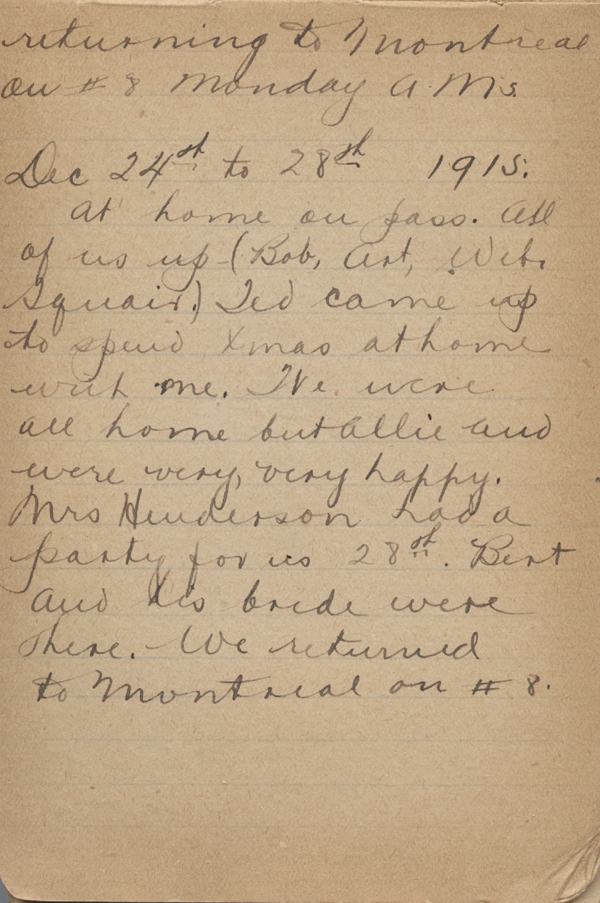 returning to Montreal
on # 8 Monday A.Ms.
Dec 24st to 28th 1915.
At home on pass. All
of us up (Bob, Art,
Squair.) Ted came up
to spend Xmas at home
with me. We were
all home but Allie and
were very, very happy.
Mrs Henderson had a
party for us 28th. Bert
and his bride were
there. We returned
to Montreal on # 8.